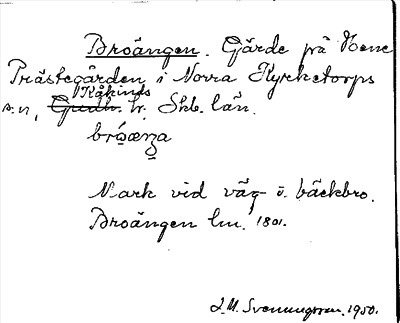 Broängen. Gärde på Hene
Prästegården i Norra Kyrketorps
Kåkinds
sn, Gudh. hr. Skb. län.
bróæŋa
Mark vid väg o. bäckbro.
Broängen lm. 1801.
J. M. Svenungsson. 1950.